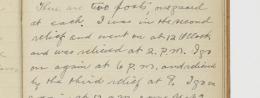 There are two posts on guard
at each. I was in the second
relief and went on at 12 O'clock
and was relieved at 2, P.M. I go
on again at 6 P.M. and relieved
by the third relief at 8, I go on